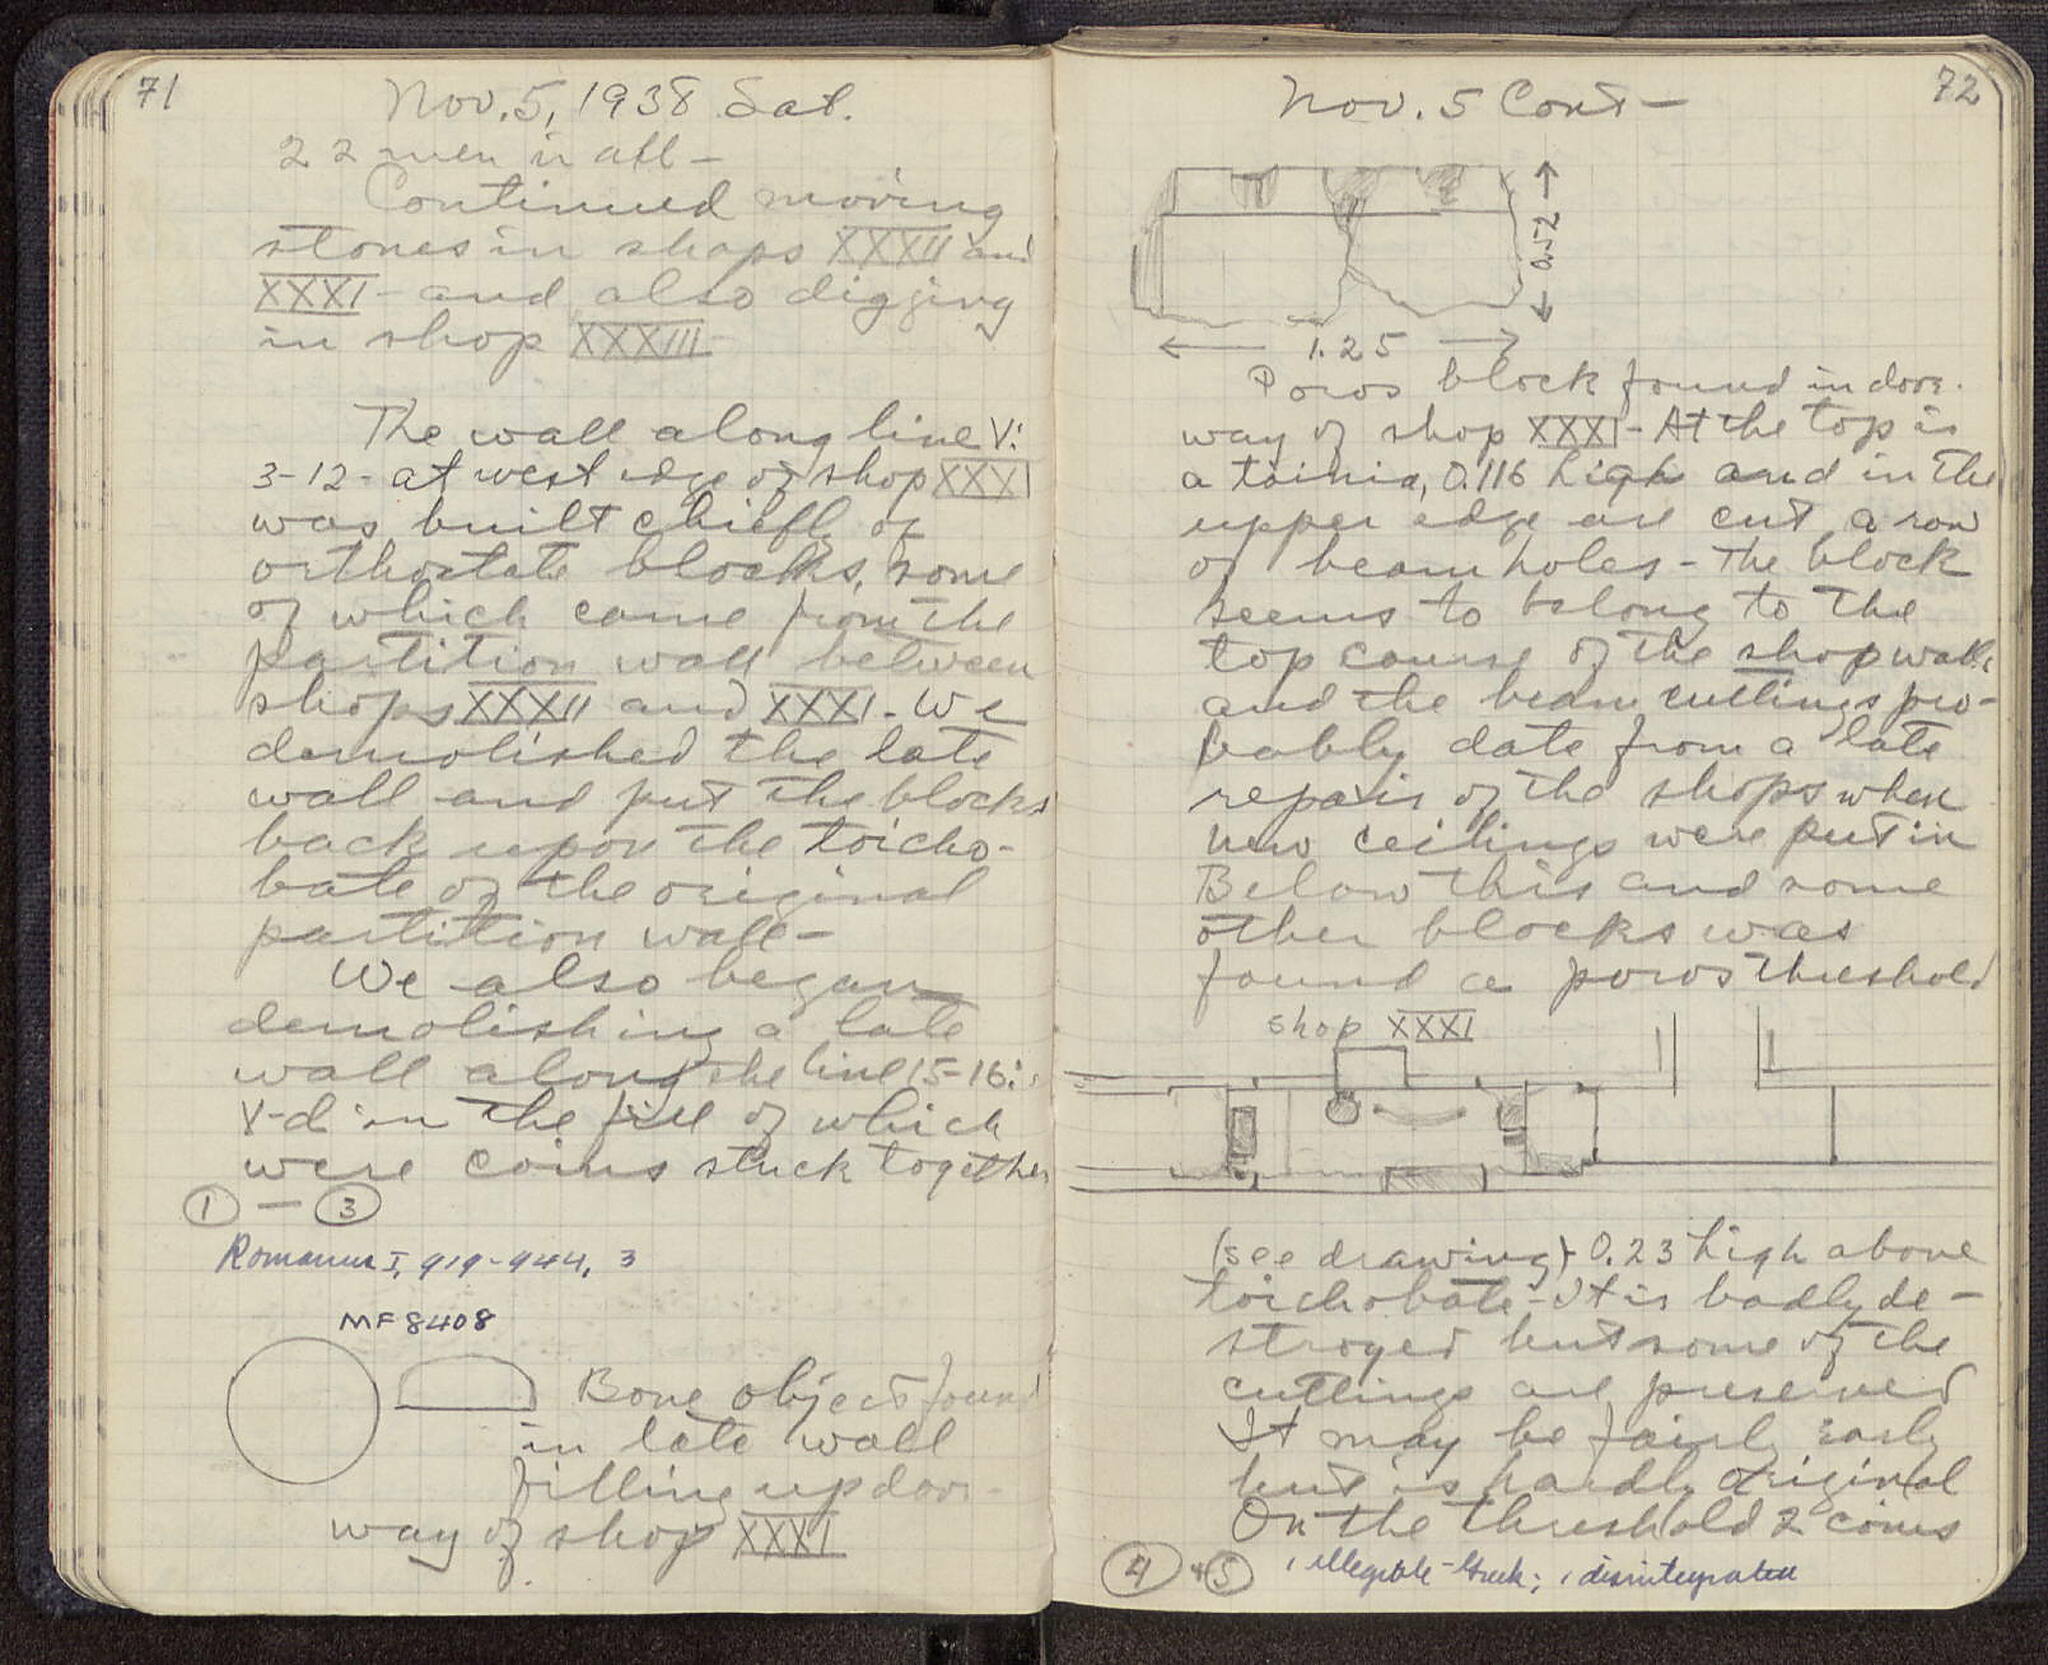 71
Nov. 5, 1938 Sat.
22 men in all -
Continued moving
stones in shops XXXII and
XXXI - and also digging
in shop XXXIII
The wall along line V:
3-12 - at west edge of shop XXXI
was built chiefly of
orthostate blocks, some
of which came from the
partition wall between
shops XXXII and XXXI. We
demolished the late
wall and put the blocks
back upon the toicho-
bate of the original
partition wall -
We also began
demolishing a late
wall along the line 15-16:
V-d in the fill of which
were coins stuck together
1 - 3
Romanus I, 919-944, 3
MF 8408
Bone object found
in late wall
filling up door-
way of shop XXXI
72
Nov. 5 Cont -
0.52
1.25
Poros block found in door-
way of shop XXXI - At the top is
a tainia, 0.116 high and in the
upper edge are cut a row
of beam holes - The block
seems to belong to the
top course of the shop walls
and the beam cuttings pro-
bably date from a late
repair of the shops when
new ceilings were put in
Below this and some
other blocks was
found a poros threshold
shop XXXI
(see drawing) 0.23 high above
toichobate - It is badly de-
stroyed but some of the
cuttings are preserved
It may be fairly early
but is hardly original
On the threshold 2 coins
4 + 5 1 illegible - Greek; 1 disintegrated